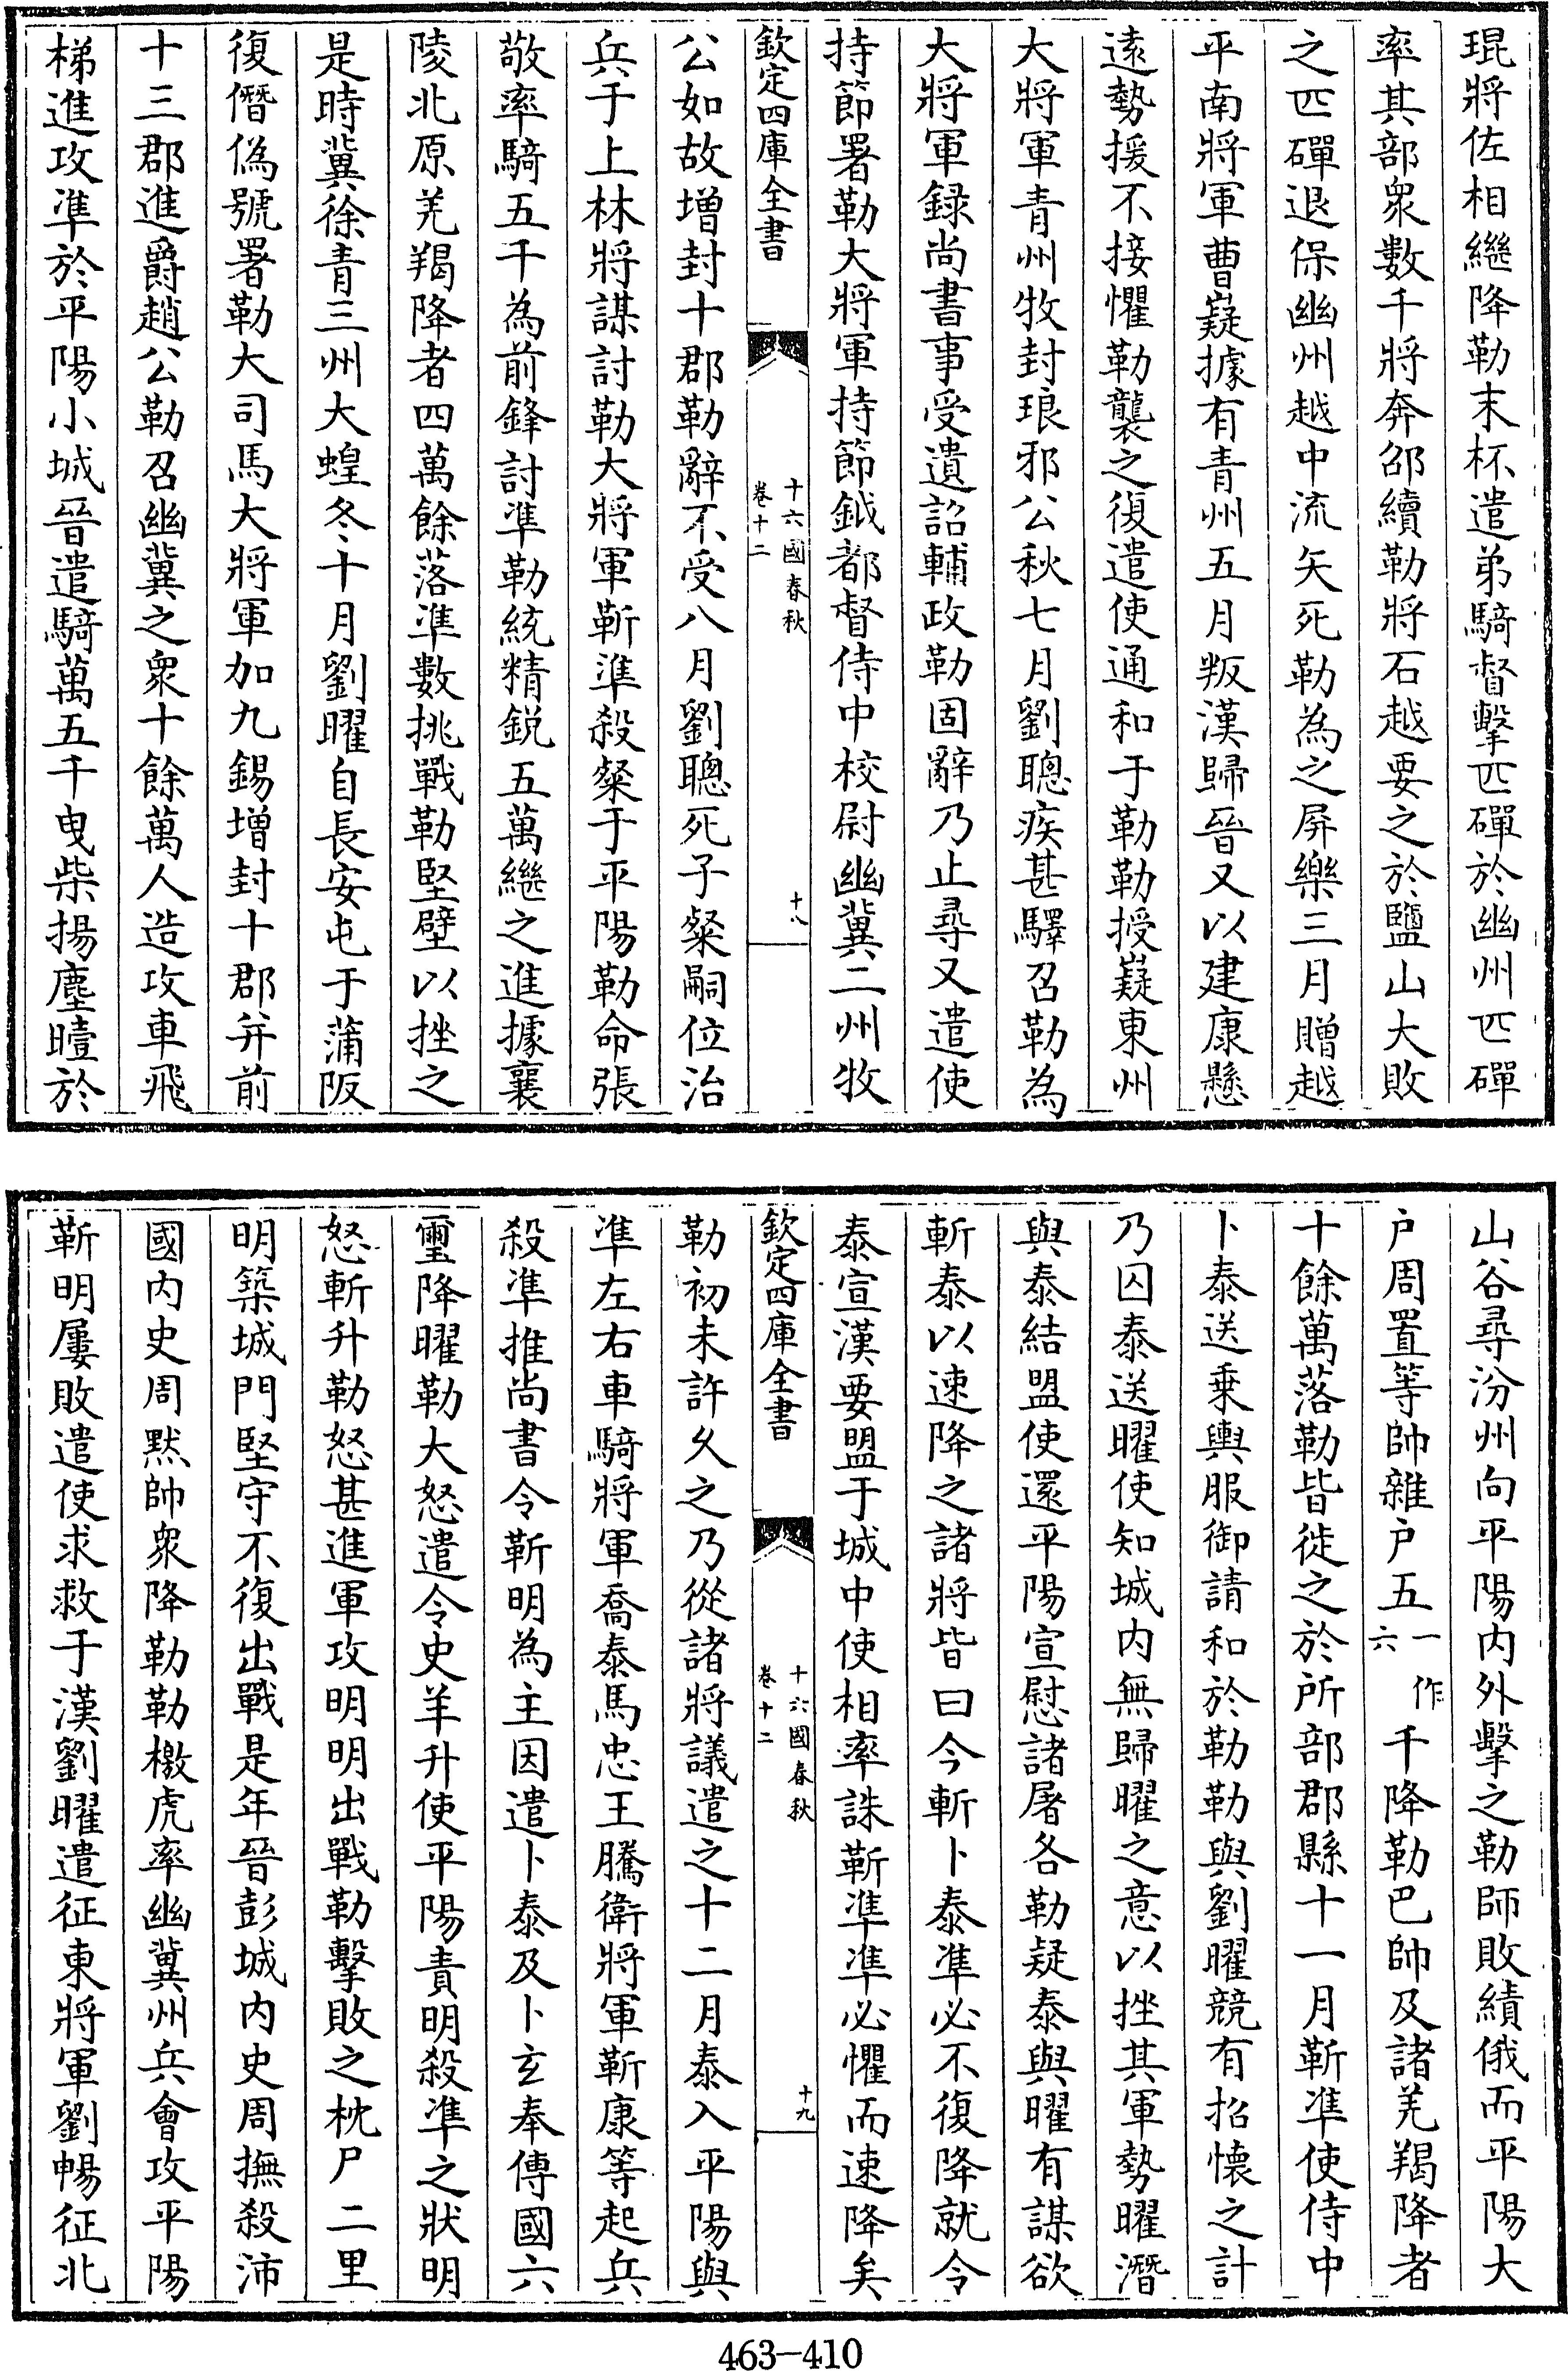 琨將佐相繼降勒末杯遣弟騎督擊匹磾於幽州匹磾
率其部衆數千將奔邵續勒將石越要之於鹽山大敗
之匹磾退保幽州越中流矢死勒為之屏樂三月贈越
平南將軍曹嶷據有青州五月叛漢歸晉又以建康懸
逺勢援不接懼勒襲之復遣使通和于勒勒授嶷東州
大將軍青州牧封琅邪公秋七月劉聰疾甚驛召勒為
大將軍録尚書事受遺詔輔政勒固辭乃止尋又遣使
持節署勒大將軍持節鉞都督侍中校尉幽冀二州牧
欽定四庫全書
十六國春秋
卷十二
十八
公如故增封十郡勒辭不受八月劉聰死子粲嗣位治
兵于上林將謀討勒大將軍靳準殺粲于平陽勒命張
敬率騎五千為前鋒討準勒統精鋭五萬繼之進據襄
陵北原羌羯降者四萬餘落準數挑戰勒堅壁以挫之
是時冀徐青三州大蝗冬十月劉曜自長安屯于蒲阪
復僭偽號署勒大司馬大將軍加九錫增封十郡并前
十三郡進爵趙公勒召幽冀之衆十餘萬人造攻車飛
梯進攻準於平陽小城晉遣騎萬五千曳柴揚塵曀於
山谷尋汾州向平陽内外擊之勒師敗績俄而平陽大
户周置等帥雜户五一作六千降勒巴帥及諸羌羯降者
十餘萬落勒皆徙之於所部郡縣十一月靳準使侍中
卜泰送乗輿服御請和於勒勒與劉曜競有招懷之計
乃囚泰送曜使知城内無歸曜之意以挫其軍勢曜潛
與泰結盟使還平陽宣慰諸屠各勒疑泰與曜有謀欲
斬泰以速降之諸將皆曰今斬卜泰準必不復降就令
泰宣漢要盟于城中使相率誅靳準準必懼而速降矣
欽定四庫全書
十六國春秋
卷十二
十九
勒初未許久之乃從諸將議遣之十二月泰入平陽與
準左右車騎將軍喬泰馬忠王騰衛將軍靳康等起兵
殺準推尚書令靳明為主因遣卜泰及卜玄奉傳國六
璽降曜勒大怒遣令史羊升使平陽責明殺準之狀明
怒斬升勒怒甚進軍攻明明出戰勒擊敗之枕尸二里
明築城門堅守不復出戰是年晉彭城内史周撫殺沛
國内史周默帥衆降勒勒檄虎率幽冀州兵會攻平陽
靳明屢敗遣使求救于漢劉曜遣征東將軍劉暢征北
463-410